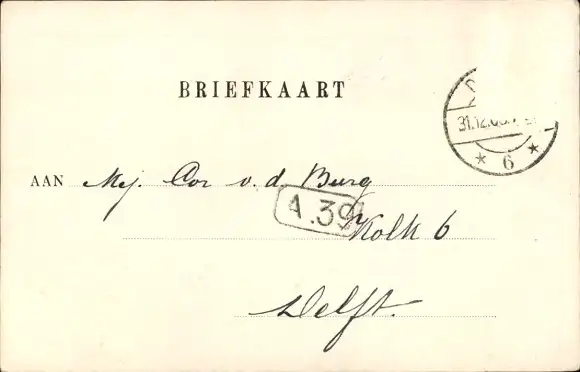 BRIEFKAART
31.12.
* 6 *
AAN Mej. Cor v. d. Burg
A.39
Kolk 6
Delft.